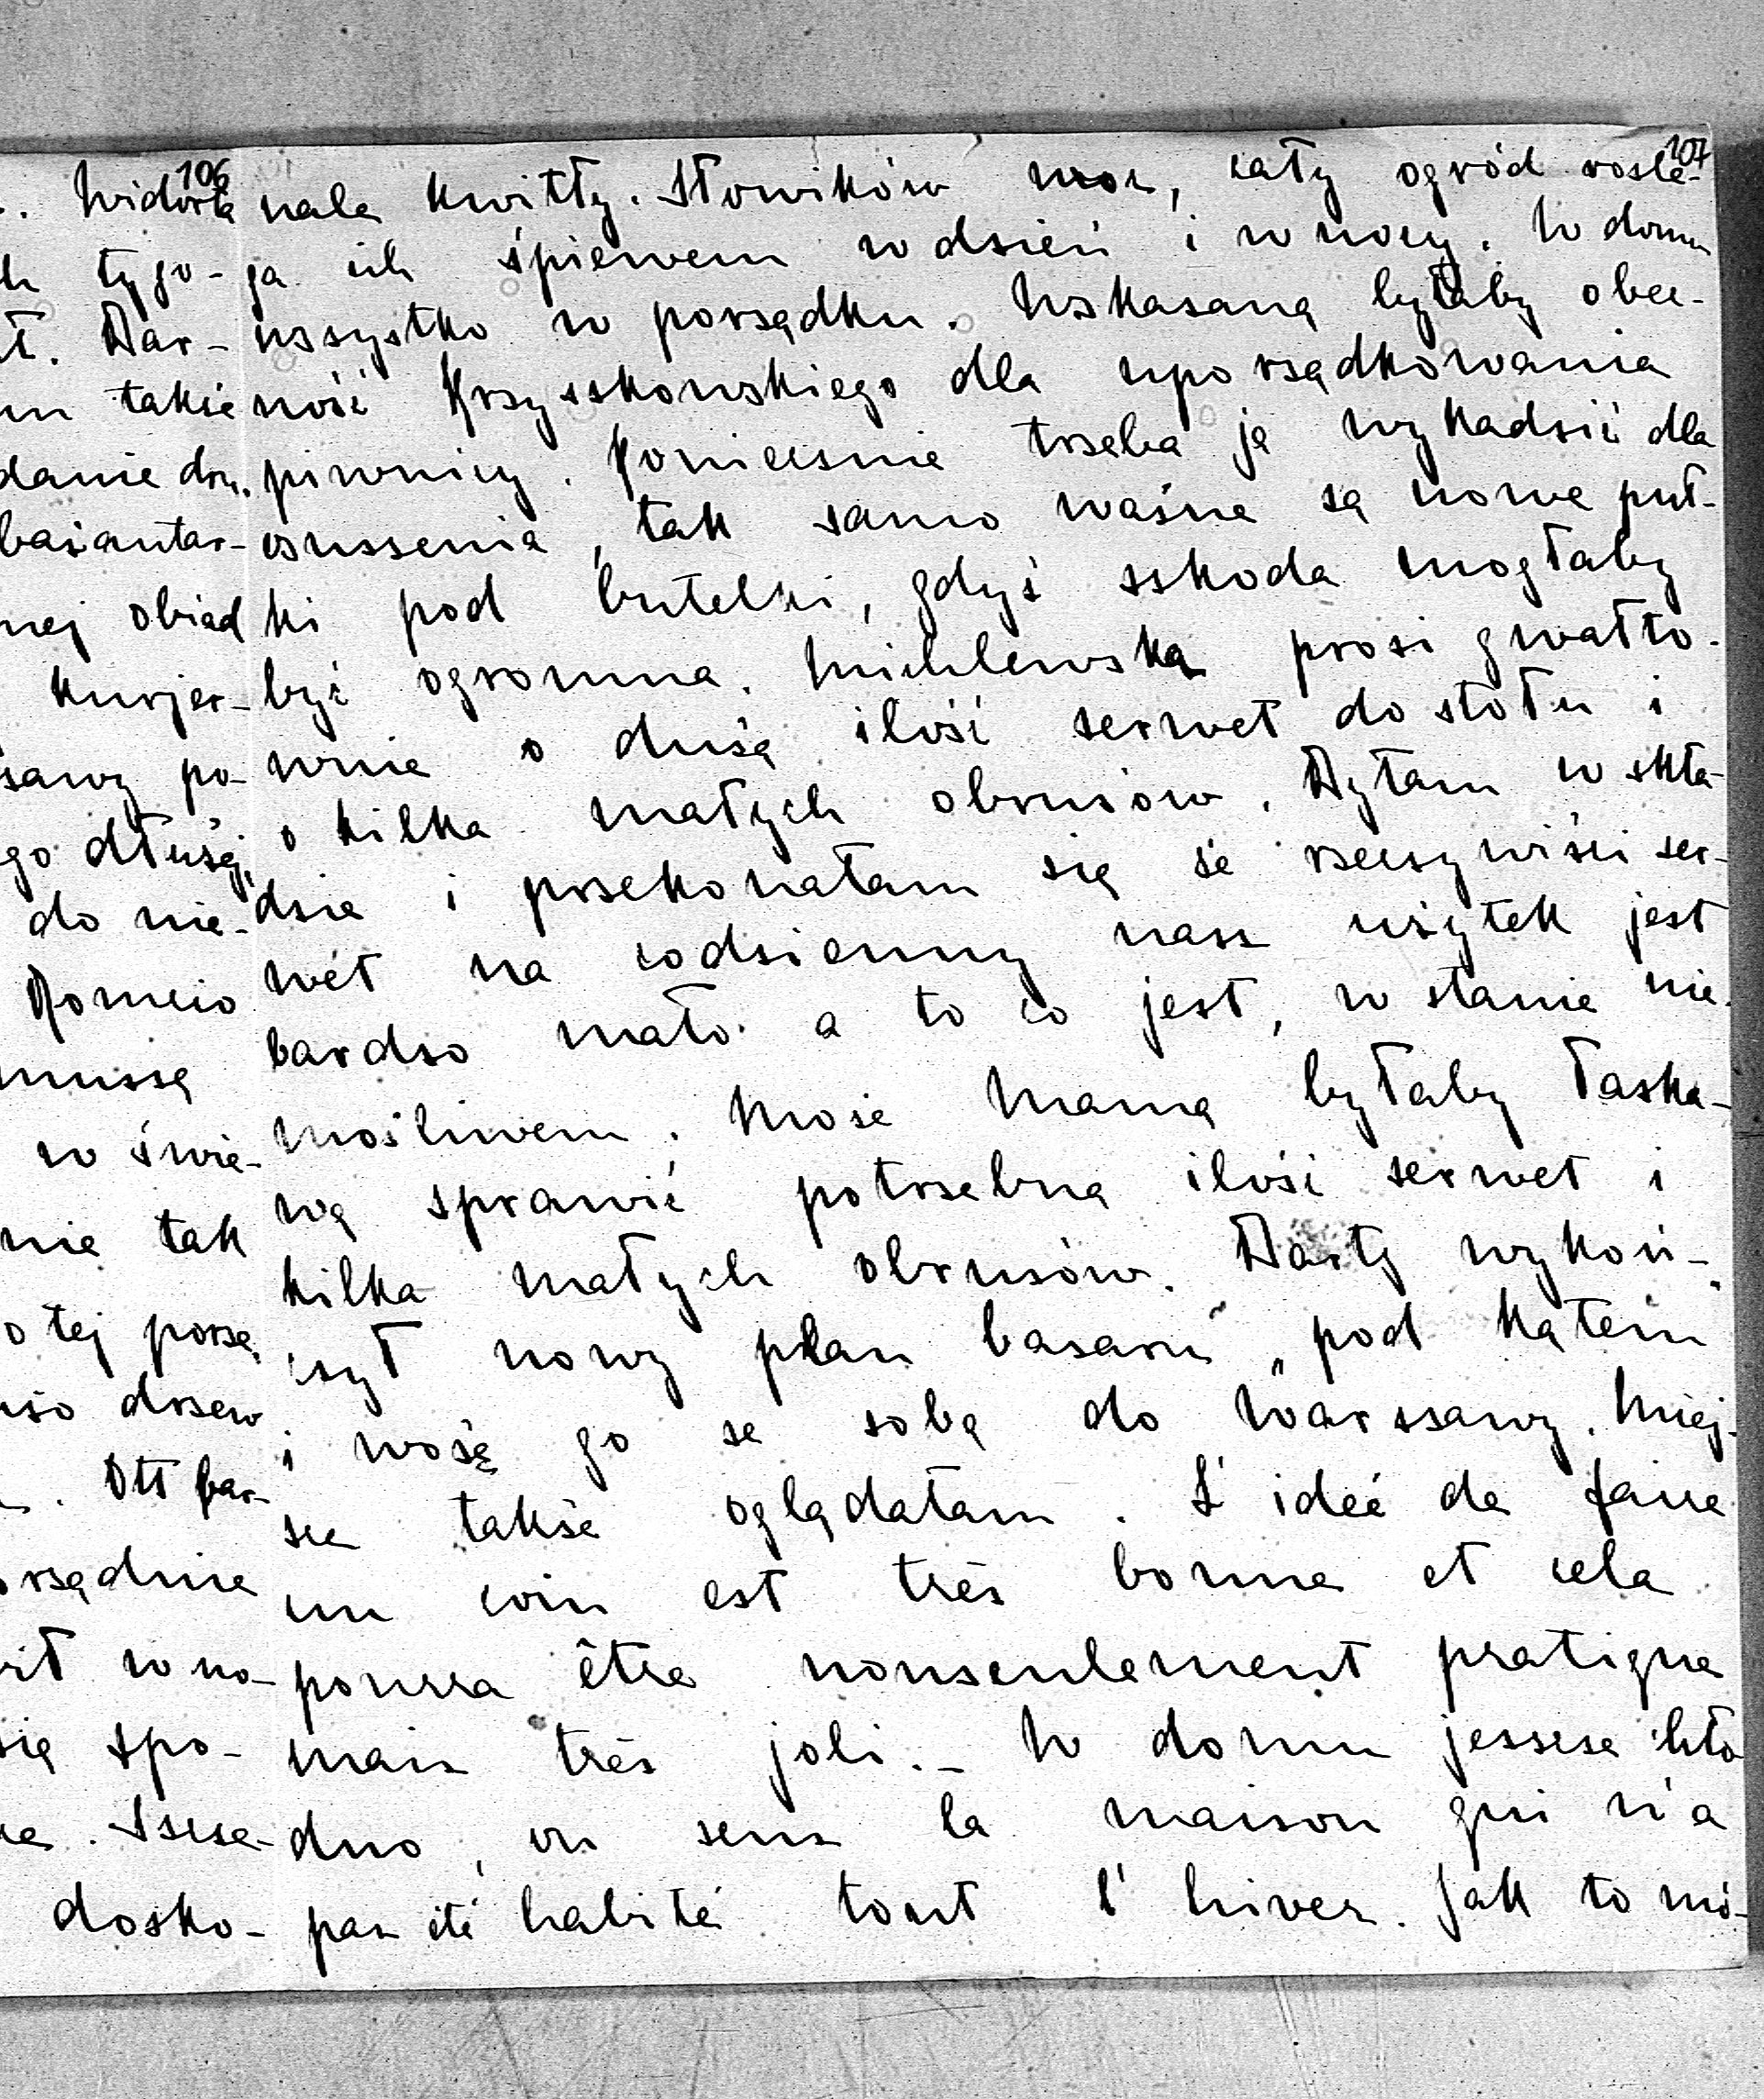 106
. Widoria
h tygo-
ł. Bar-
m takie
danie dru.
bażantar-
nej obiad
Kurjer-
szawy po-
go dłużej,
do nie-
Romcio
muszę
w świe-
nie tak
o tej porze,
użo drzew
. Ott bar-
orządnie
ił w no-
się spo-
. Szcze-
dosko-
107
nale kwitły. Słowików moc, cały ogród rozle-
ga ich śpiewem w dzień i w nocy. W domu
wszystko w porządku. Wskazaną byłaby obec-
ność Krzyszkowskiego dla uporządkowania
piwnicy. Koniecznie trzeba ją wykadzić dla
osuszenia, tak samo ważne są nowe puł-
ki pod butelki, gdyż szkoda mogłaby
być ogromna. Michlewska prosi gwałto-
wnie o dużą ilość serwet do stołu i
o kilka małych obrusów. Byłam w skła-
dzie i przekonałam się że rzeczywiści ser-
wét na codzienny nasz użytek jest
bardzo mało a to co jest, w stanie nie-
możliwem. Może Mama byłaby łaska-
wą sprawić potrzebną ilość serwet i
kilka małych obrusów. Barty wykoń-
czył nowy plan bazaru „pod Kątem"
i wożę go ze sobą do Warszawy. Miej-
sce także oglądałam. L'idée de faire
un coin est très bonne et cela
pourra être nonseulement pratique
mais très joli. - W domu jeszcze chło
dno, on sens la maison qui n'a
pas été habité tout l'hiver. Jak to mó-